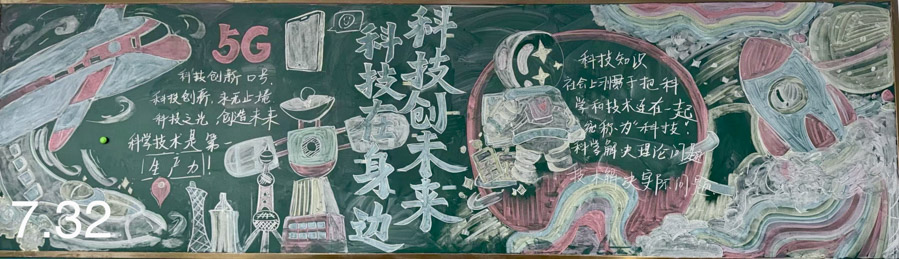 5G
科技创新口号
科技创新,永无止境
科技之光 创造未来
科学技术是第一
生产力!
科技创未来
科技在身边
科技知识
社会上习惯于把科
学和技术连在一起
统称为“科技”!
科学解决理论问题
技术解决实际问题
7.32